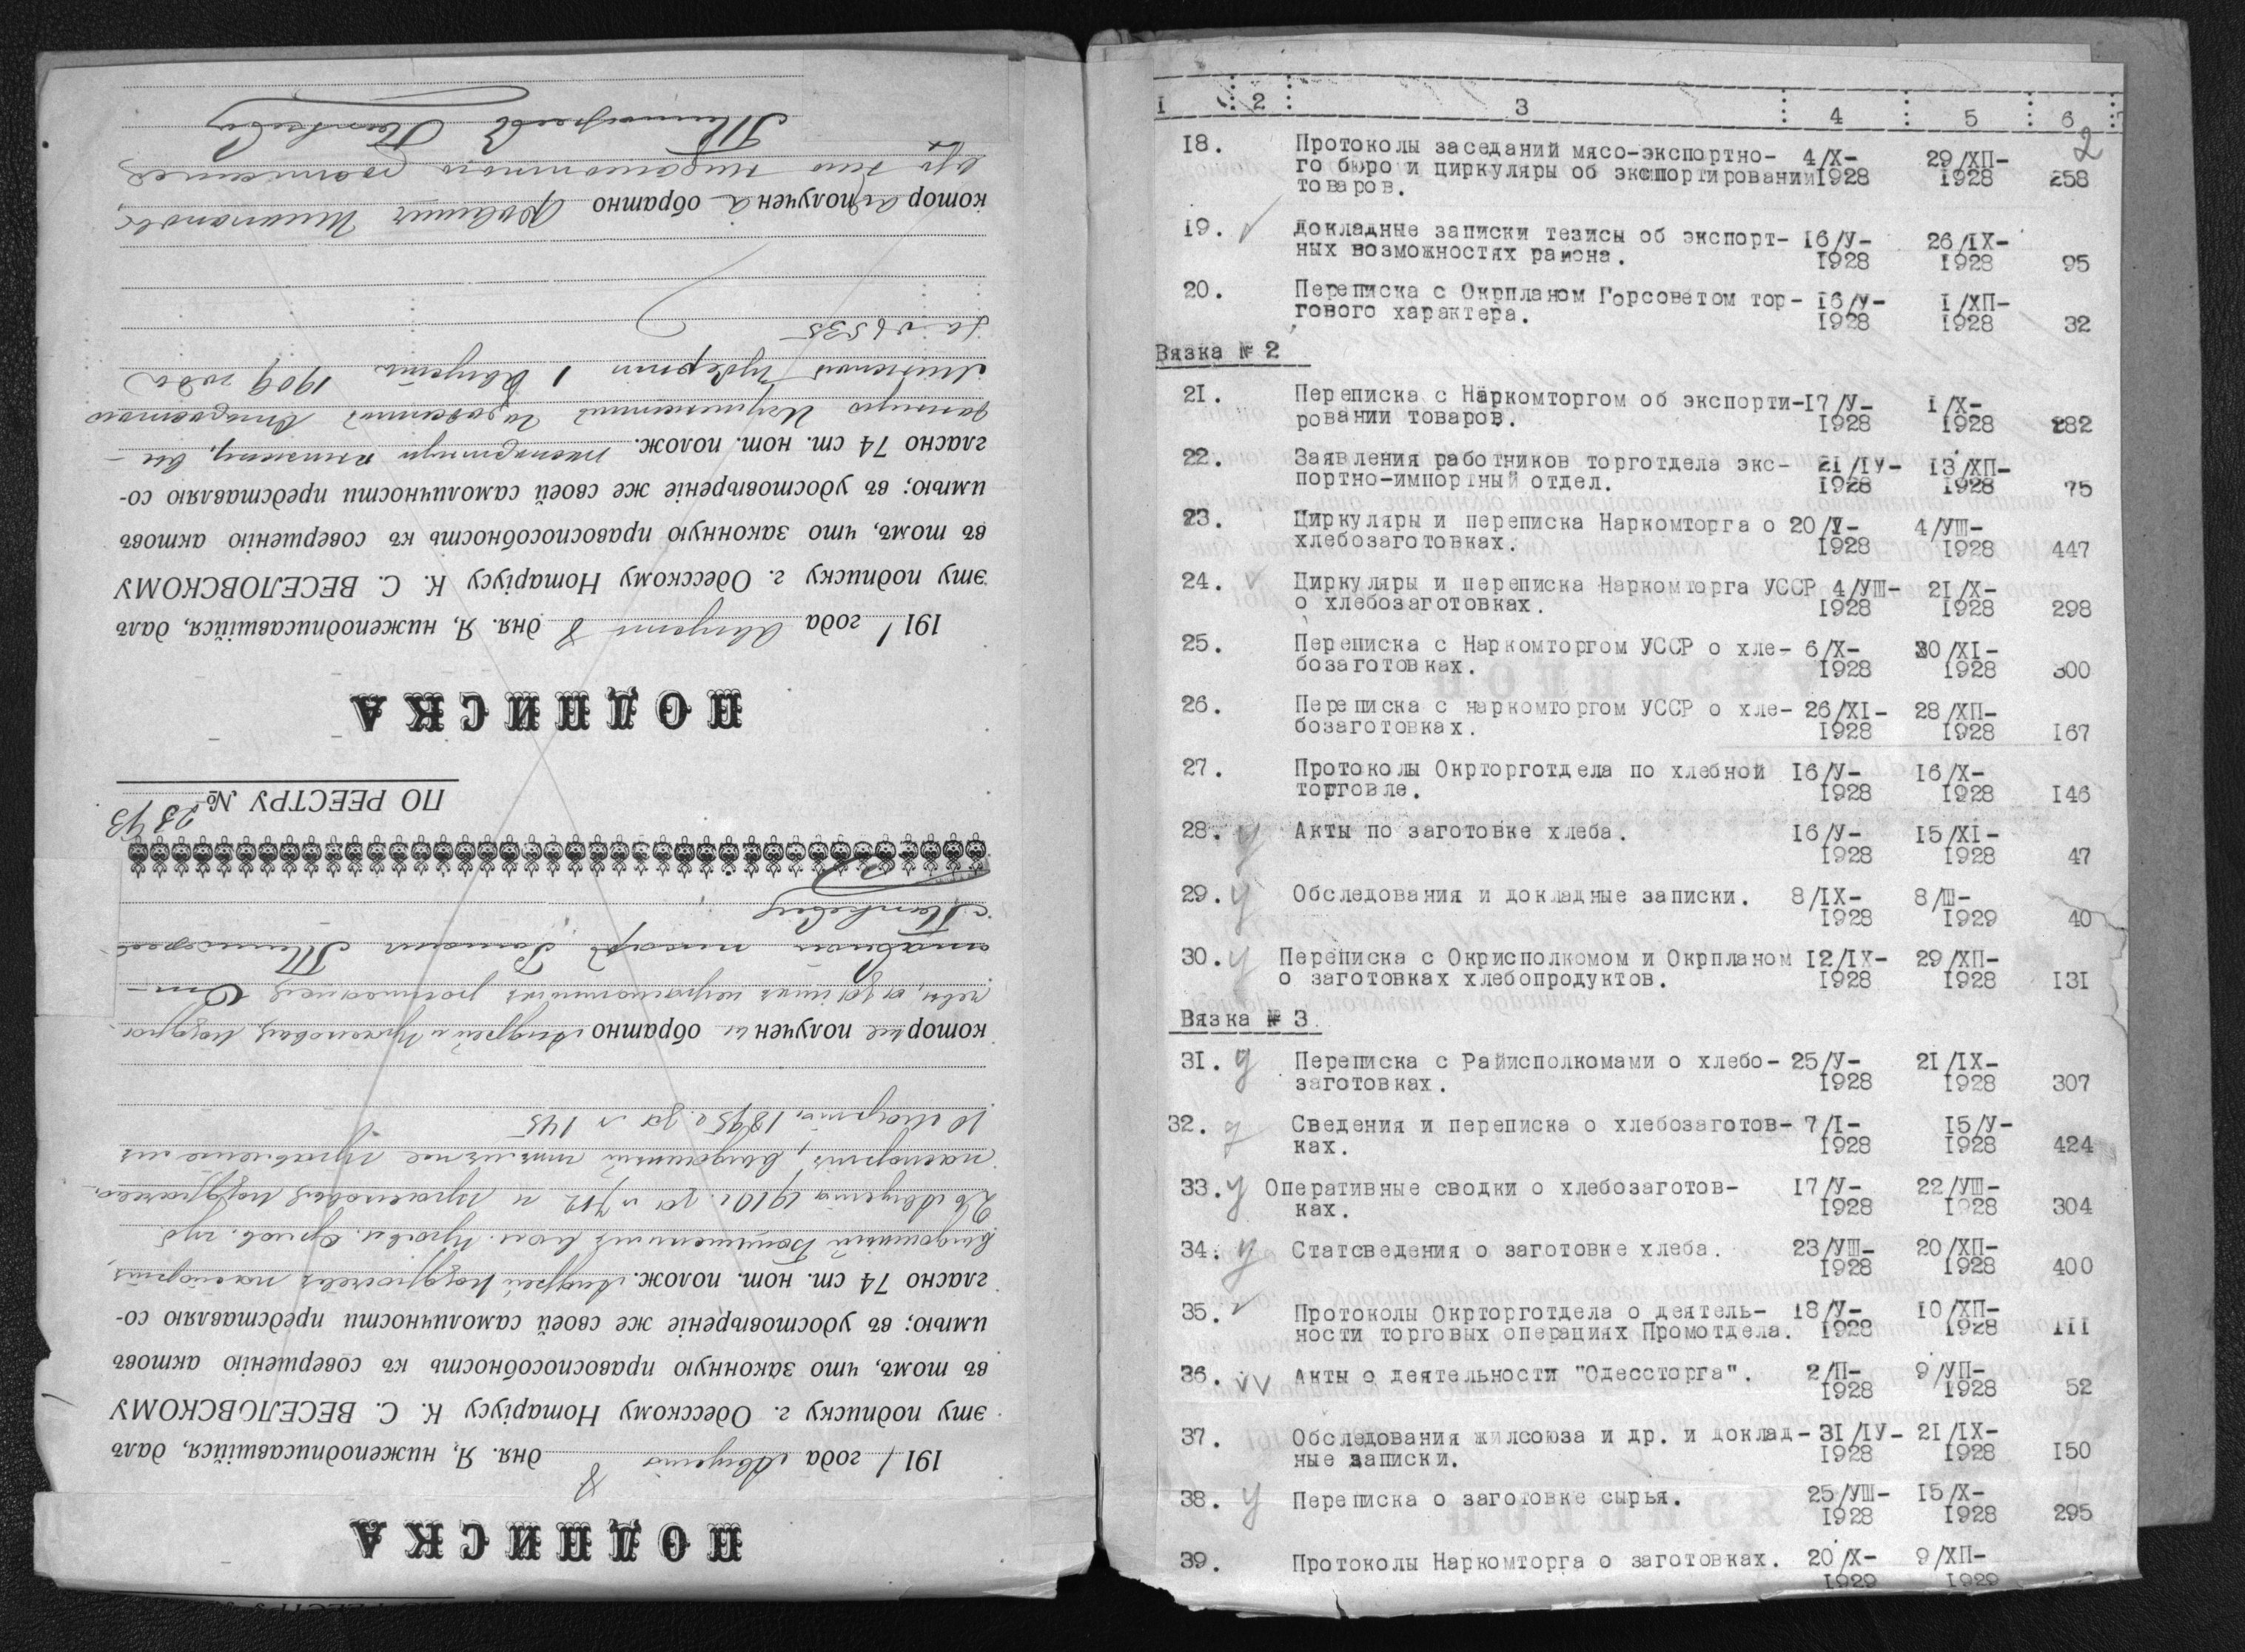 ПОДПИСКА
191 1 года Августа 8 дня. Я, нижеподписавшійся, далъ
эту подписку г. Одесскому Нотаріусу К. С. ВЕСЕЛОВСКОМУ
въ томъ, что законную правоспособность къ совершенію актовъ
имѣю; въ удостовѣреніе же своей самоличности представляю со-
гласно 74 ст. нот. полож. Андрей паспортъ
выданный
26 Августа 1910 г. за № 712 и
паспортъ, выданный
10 Марта 1895 г. за № 145
котор ые получен ы обратно Андрей
ПО РЕЕСТРУ №
ПОДПИСКА
191 1 года Августа 8 дня. Я, нижеподписавшійся, далъ
эту подписку г. Одесскому Нотаріусу К. С. ВЕСЕЛОВСКОМУ
въ томъ, что законную правоспособность къ совершенію актовъ
имѣю; въ удостовѣреніе же своей самоличности представляю со-
гласно 74 ст. нот. полож. паспортную книжку, вы-
данную
Минской губерніи 1 Августа 1909 года
за № 535
котор ая получен а обратно
1 2 3 4 5 6
2
18. Протоколы заседаний мясо-экспортно- 4/X- 29/ХП-
го бюро и циркуляры об экспортировании 1928 1928 258
товаров.
19. докладные записки тезисы об экспорт- 16/У- 26/IX-
ных возможностях района. 1928 1928 95
20. Переписка с Окрпланом Горсоветом тор- 16/У- 1/ХП-
гового характера. 1928 1928 32
Вязка № 2
21. Переписка с Наркомторгом об экспорти- 17/У- 1/X-
ровании товаров. 1928 1928 282
22. Заявления работников торготдела экс- 21/IУ- 13/ХП-
портно-импортный отдел. 1928 1928 75
23. Циркуляры и переписка Наркомторга о 20/У- 4/УШ-
хлебозаготовках. 1928 1928 447
24. Циркуляры и переписка Наркомторга УССР 4/УШ- 21/X-
о хлебозаготовках. 1928 1928 298
25. Переписка с Наркомторгом УССР о хле- 6/X- 30/XI-
бозаготовках. 1928 1928 300
26. Переписка с наркомторгом УССР о хле- 26/XI- 28/ХП-
бозаготовках. 1928 1928 167
27. Протоколы Окрторготдела по хлебной 16/У- 16/X-
торговле. 1928 1928 146
28. у Акты по заготовке хлеба. 16/У- 15/XI-
1928 1928 47
29. у Обследования и докладные записки. 8/IX- 8/Ш-
1928 1929 40
30. у Переписка с Окрисполкомом и Окрпланом 12/IX- 29/ХП-
о заготовках хлебопродуктов. 1928 1928 131
Вязка № 3
31. у Переписка с Райисполкомами о хлебо- 25/У- 21/IX-
заготовках. 1928 1928 307
32. у Сведения и переписка о хлебозаготов- 7/I- 15/У-
ках. 1928 1928 424
33. у Оперативные сводки о хлебозаготов- 17/У- 22/УШ-
ках. 1928 1928 304
34. у Статсведения о заготовке хлеба. 23/УШ- 20/ХП-
1928 1928 400
35. Протоколы Окрторготдела о деятель- 18/У- 10/ХП-
ности торговых операциях Промотдела. 1928 1928 111
36. Акты о деятельности "Одессторга". 2/П- 9/УП-
1928 1928 52
37. Обследования жилсоюза и др. и доклад- 31/IУ- 21/IX-
ные записки. 1928 1928 150
38. у Переписка о заготовке сырья. 25/УШ- 15/X-
1928 1928 295
39. Протоколы Наркомторга о заготовках. 20/X- 9/ХП-